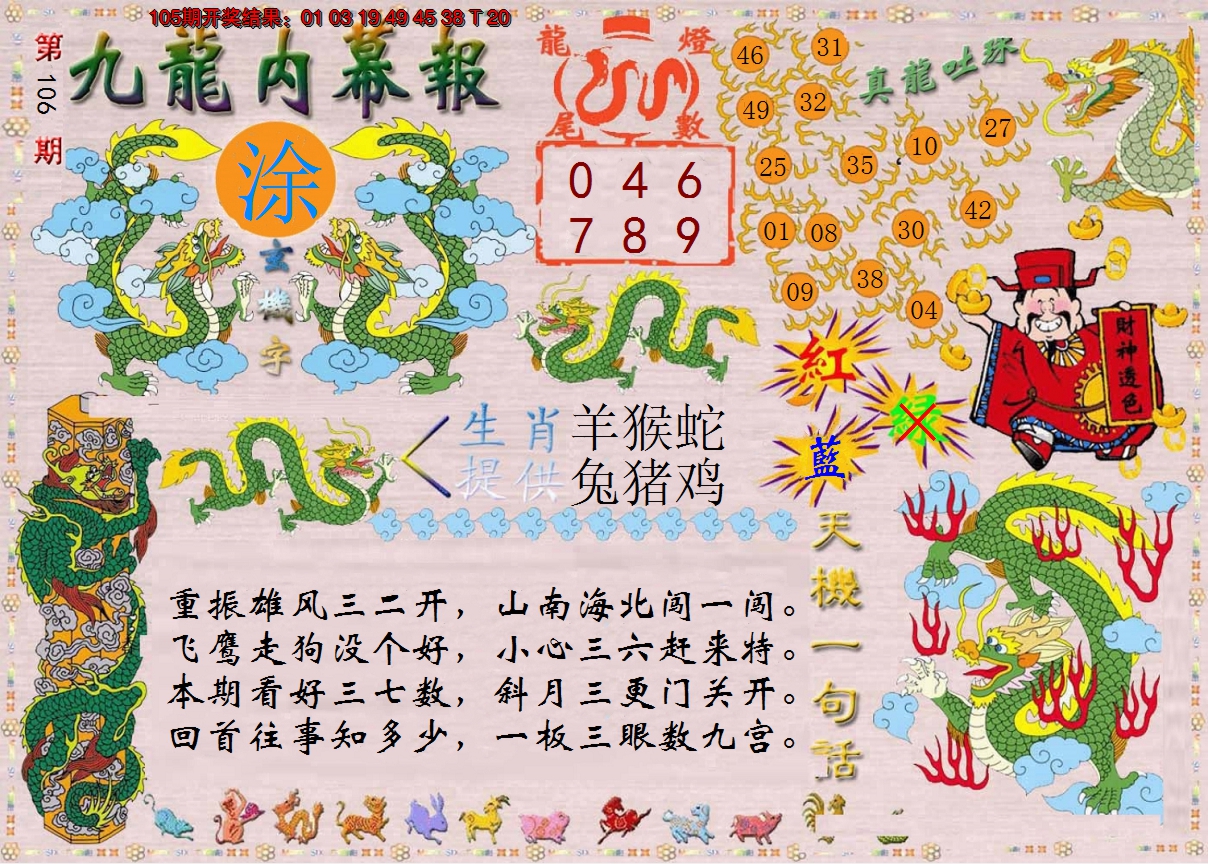 105期开奖结果：01 03 19 49 45 38 T 20
第106期
九龍内幕報
涂
玄機字
龍燈
尾數
0 4 6
7 8 9
真龍吐珠
46 31
49 32
25 35 10 27
01 08 30 42
09 38 04
財神透色
紅
绿
藍
生肖 羊猴蛇
提供 兔猪鸡
天機一句話
重振雄风三二开，山南海北闯一闯。
飞鹰走狗没个好，小心三六赶来特。
本期看好三七数，斜月三更门关开。
回首往事知多少，一板三眼数九宫。